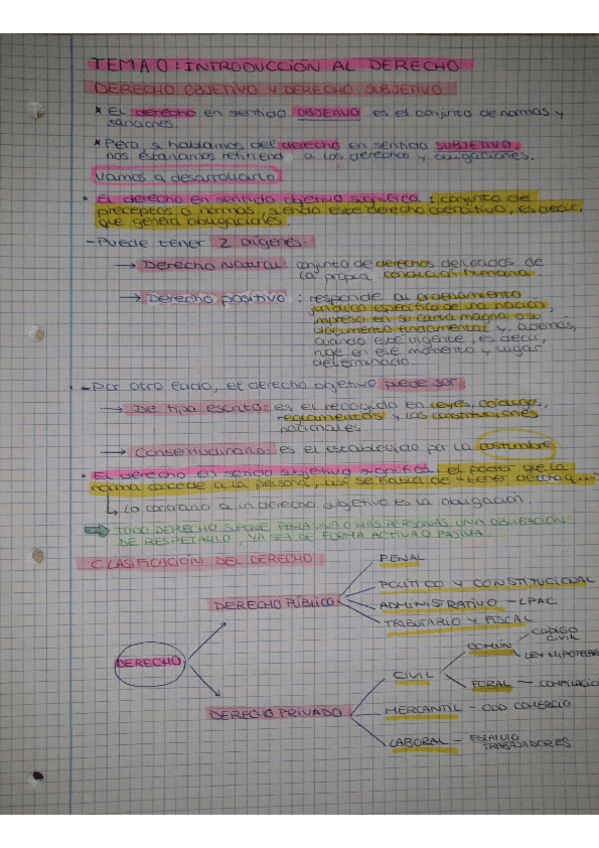 TEMA 0: INTRODUCCIÓN AL DERECHO
DERECHO OBJETIVO Y DERECHO SUBJETIVO
* El derecho en sentido OBJETIVO es el conjunto de normas y
sanciones.
* Pero, si hablamos del derecho en sentido SUBJETIVO,
nos estaríamos refiriendo a los derechos y obligaciones.
Vamos a desarrollarlo
• El derecho en sentido objetivo significa: conjunto de
preceptos o normas, siendo este derecho coercitivo, es decir,
que genera obligaciones.
- Puede tener 2 orígenes:
→ Derecho Natural: conjunto de derechos derivados de
la propia condición humana.
→ Derecho positivo: responde al ordenamiento
jurídico específico de una nación,
impreso en su carta magna o su
documento fundamental y, además,
cuando esté vigente, es decir,
rige en ese momento y lugar
determinado.
- Por otro lado, el derecho objetivo puede ser:
→ De tipo escrito: es el recogido en leyes, códigos,
reglamentos y las constituciones
nacionales
→ Consuetudinario: es el establecido por la costumbre.
• El derecho en sentido subjetivo significa: el poder que la
norma concede a la persona, así se habla de "tener derecho a..."
↳ Lo contrario a un derecho subjetivo es la obligación
⇒ TODO DERECHO SUPONE PARA UNA O MÁS PERSONAS UNA OBLIGACIÓN
DE RESPETARLO, YA SEA DE FORMA ACTIVA O PASIVA...
CLASIFICACIÓN DEL DERECHO:
DERECHO
DERECHO PÚBLICO
PENAL
POLÍTICO Y CONSTITUCIONAL
ADMINISTRATIVO - LPAC
TRIBUTARIO Y FISCAL
DERECHO PRIVADO
CIVIL
COMÚN
CÓDIGO
CIVIL
LEY HIPOTECA
FORAL - COMPILACIO
MERCANTIL - COD COMERCIO
LABORAL - ESTATUTO
TRABAJADORES